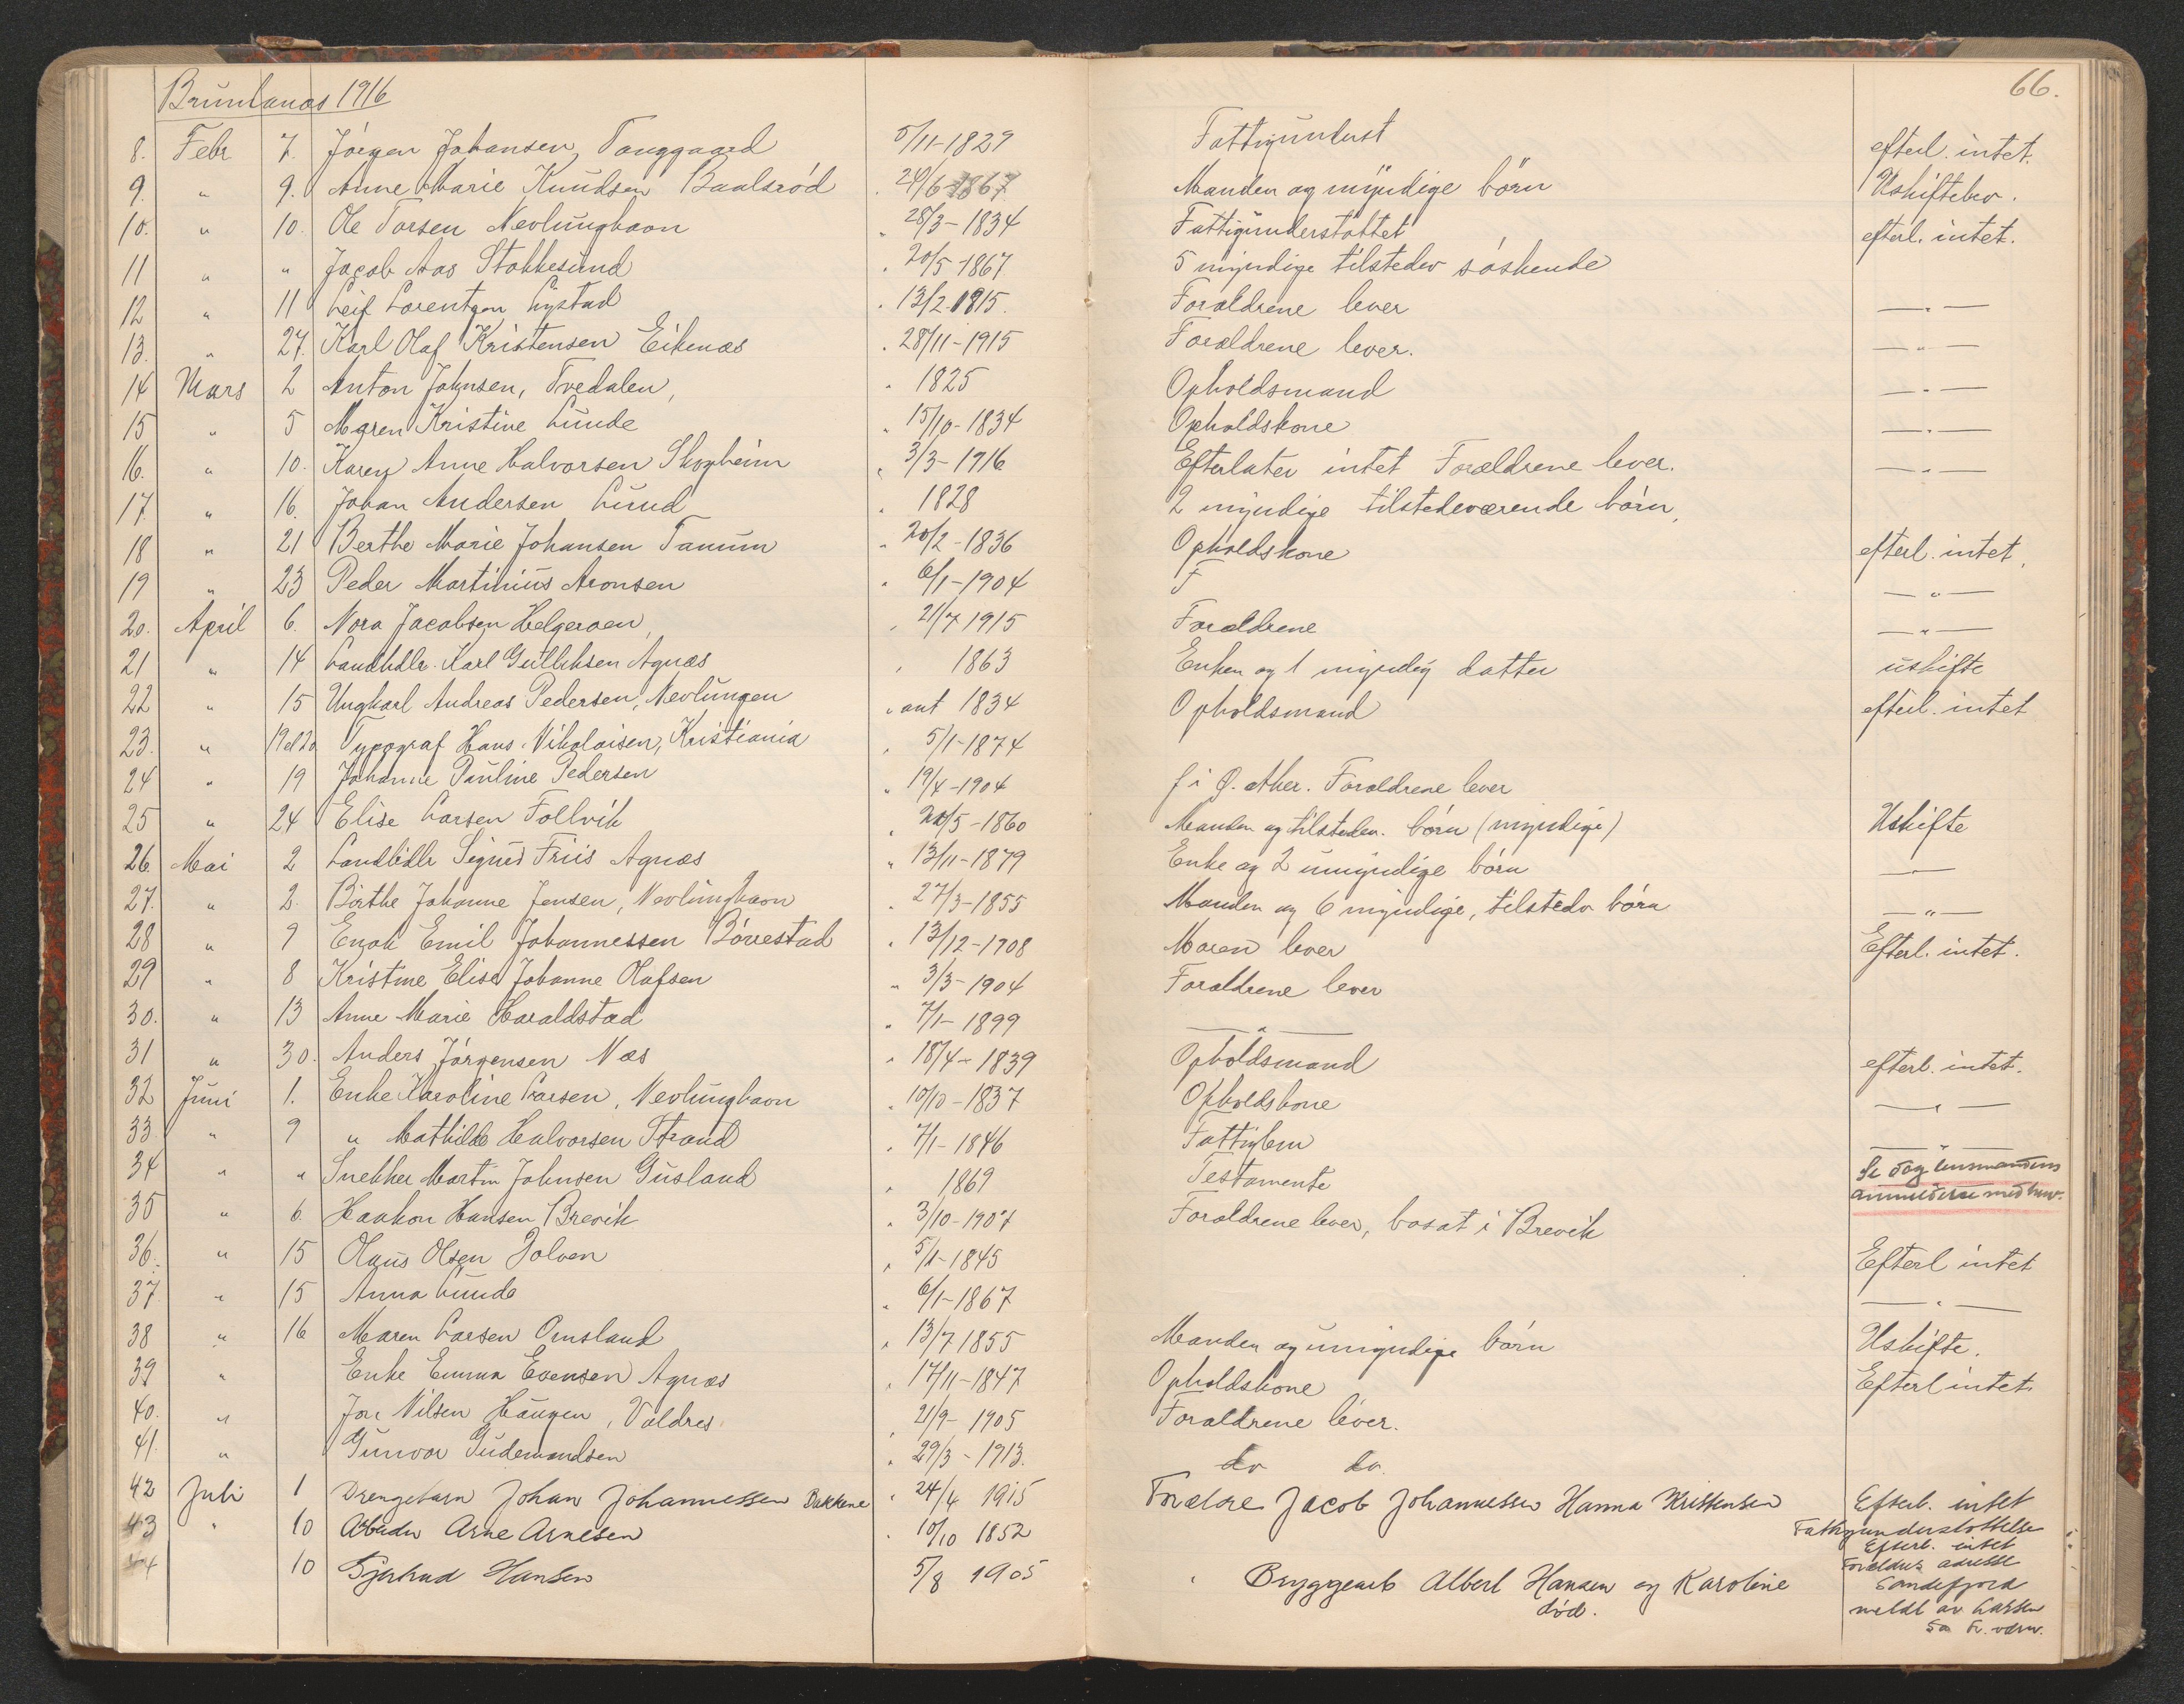 Brunlanæs 1916
66.
8. Febr 7. Jörgen Johansen, Tanggaard 5/11-1829 Fattigunderst efterl. intet.
9. " 9. Anne Marie Knudsen Baalsröd " 24/6-1867 Manden og myndige börn Uskiftebev.
10. " 10. Ole Torsen Nevlunghavn " 28/3-1834 Fattigunderstöttet efterl. intet.
11 " " Jacob Aas Stokkesund " 20/5-1867 5 myndige tilstedev söskende
12 " 11 Leif Lorentzen Lystad " 13/2-1915. Forældrene lever —"—
13. " 27. Karl Olaf Kristensen Eikenæs " 28/11-1915 Forældrene lever. —"—
14 Mars 2 Anton Johnsen, Tvedalen, " 1825 Opholdsmand —"—
15 " 5 Maren Kristine Lunde " 15/10-1834 Opholdskone —"—
16. " 10. Karen Anne Halvorsen Skogheim " 3/3-1916 Efterlater intet Forældrene lever. —"—
17. " 16. Johan Andersen Lund " 1828 2 myndige tilstedeværende börn,
18 " 21 Berthe Marie Johansen Tanum " 20/2-1836 Opholdskone efterl. intet,
19 " 23 Peder Martinius Aronsen " 6/1-1904 F —"—
20. April 6. Nora Jacobsen Helgeroen, " 21/7 1915 Forældrene —"—
21 " 14 Landhdlr. Karl Gulliksen Agnæs " 1863 Enken og 1 myndig datter uskifte
22 " 15 Ungkarl Andreas Pedersen, Nevlungen " ant 1834 Opholdsmand efterl. intet
23. " 19 el 20 Typograf Hans Nikolaisen, Kristiania " 5/1-1874
24 " 19 Johanne Pauline Pedersen " 19/4-1904 f i Ø. Aker. Forældrene lever
25 " 24 Elise Larsen Follvik " 20/5-1860 Manden og tilstedev. börn (myndige) Uskifte
26. Mai 2 Landhdlr Signus Friis Agnæs " 13/11-1879 Enke og 2 umyndige börn —"—
27. " 2. Birthe Johanne Jensen, Nevlunghavn " 27/3-1855 Manden og 6 myndige, tilstedv börn —"—
28 " 9 Enok Emil Johannessen Börrestad " 13/12-1908 Moren lever Efterl. intet.
29 " 8 Kristine Elise Johanne Olafsen " 3/3-1904 Forældrene lever
30. " 13 Anne Marie Haraldstad " 7/1-1899 —"—
31 " 30. Anders Jörgensen Næs " 18/4-1839 Opholdsmand efterl. intet.
32 Juni 1. Enke Karoline Larsen, Nevlunghavn " 10/10-1837 Opholdskone —"—
33 " 9 " Mathilde Halvorsen Strand " 7/1-1846 Fattiglem —"—
34 " " Snekker Martin Johnsen Gusland " 1869 Testamente Se dog lensmandens
anmeldelse med brev.
35 " 6. Haakon Hansen Brevik " 3/10-1907 Forældrene lever, bosat i Brevik
36. " 15 Olaus Olsen Jolven " 5/1-1845 Efterl intet
37. " 15 Anna Lunde " 6/1-1867 —"—
38 " 16 Maren Larsen Omsland " 13/7 1855 Manden og umyndige börn Uskifte.
39 " Enke Emma Evensen Agnæs " 17/11-1847 Opholdskone Efterl intet.
40. " Jon Nilsen Haugen, Valdres. " 21/9-1905 Forældrene lever.
41. " Gunvor Gudemundsen " 29/3-1913. do do.
42 Juli 1 Drengebarn Johan Johannessen Bakkene " 24/4 1915 Forældre Jacob Johannessen Hanna Kristensen Efterl. intet
43 " 10 Arbeider Arne Arnesen " 10/10 1852 Fattigunderstöttelse
Efterl. intet
44 10 Gjertrud Hansen 5/8 1905 " Bryggearb Albert Hansen og Karoline død. Forældres adresse
Sandefjord
meldt av Larsen